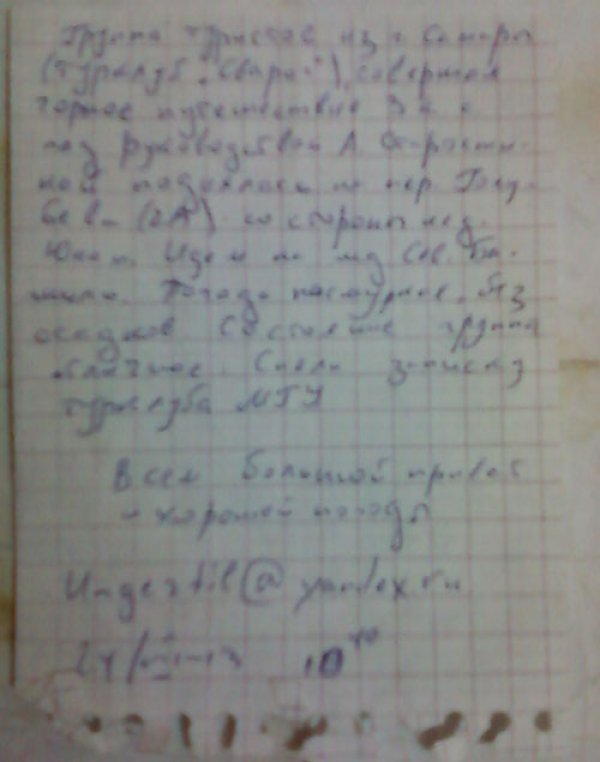 Группа туристов из г. Самары
(турклуб "Сварог"), совершая
горное путешествие 3 к.с.
под руководством А. Старостин-
ной поднялась на пер. Голу-
бева (2А) со стороны лед.
Идем на лед. Сев.
Погода пасмурная, без
осадков. Состояние группы
отличное. Сняли записку
турклуба МГУ
Всем большой привет
и хорошей погоды
@yandex.ru
10 40